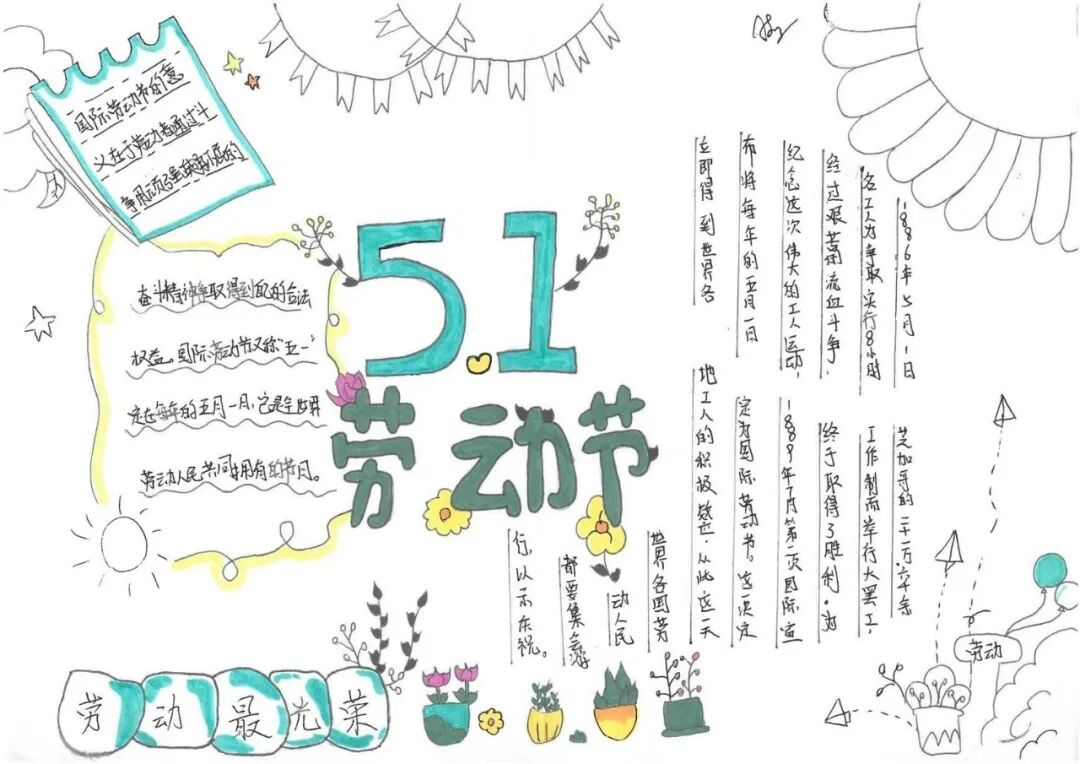 国际劳动节的意
义在于劳动者通过斗
争用顽强英勇不屈的
奋斗精神争取得到自己的合法
权益。国际劳动节又称"五一"
定在每年的五月一日。它是全世界
劳动人民共同拥有的节日。
5.1
劳动节
1886年5月1日
芝加哥的二十一万六千余
名工人为争取实行8小时
工作制而举行大罢工,
经过艰苦流血斗争,
终于取得了胜利。为
纪念这次伟大的工人运动,
1889年7月第二次国际宣
布将每年的五月一日
定为国际劳动节。这一决定
立即得到世界各
地工人的积极 从此这一天
世界各国劳
动人民
都要集会游
行,以示庆祝。
劳动
劳动最光荣